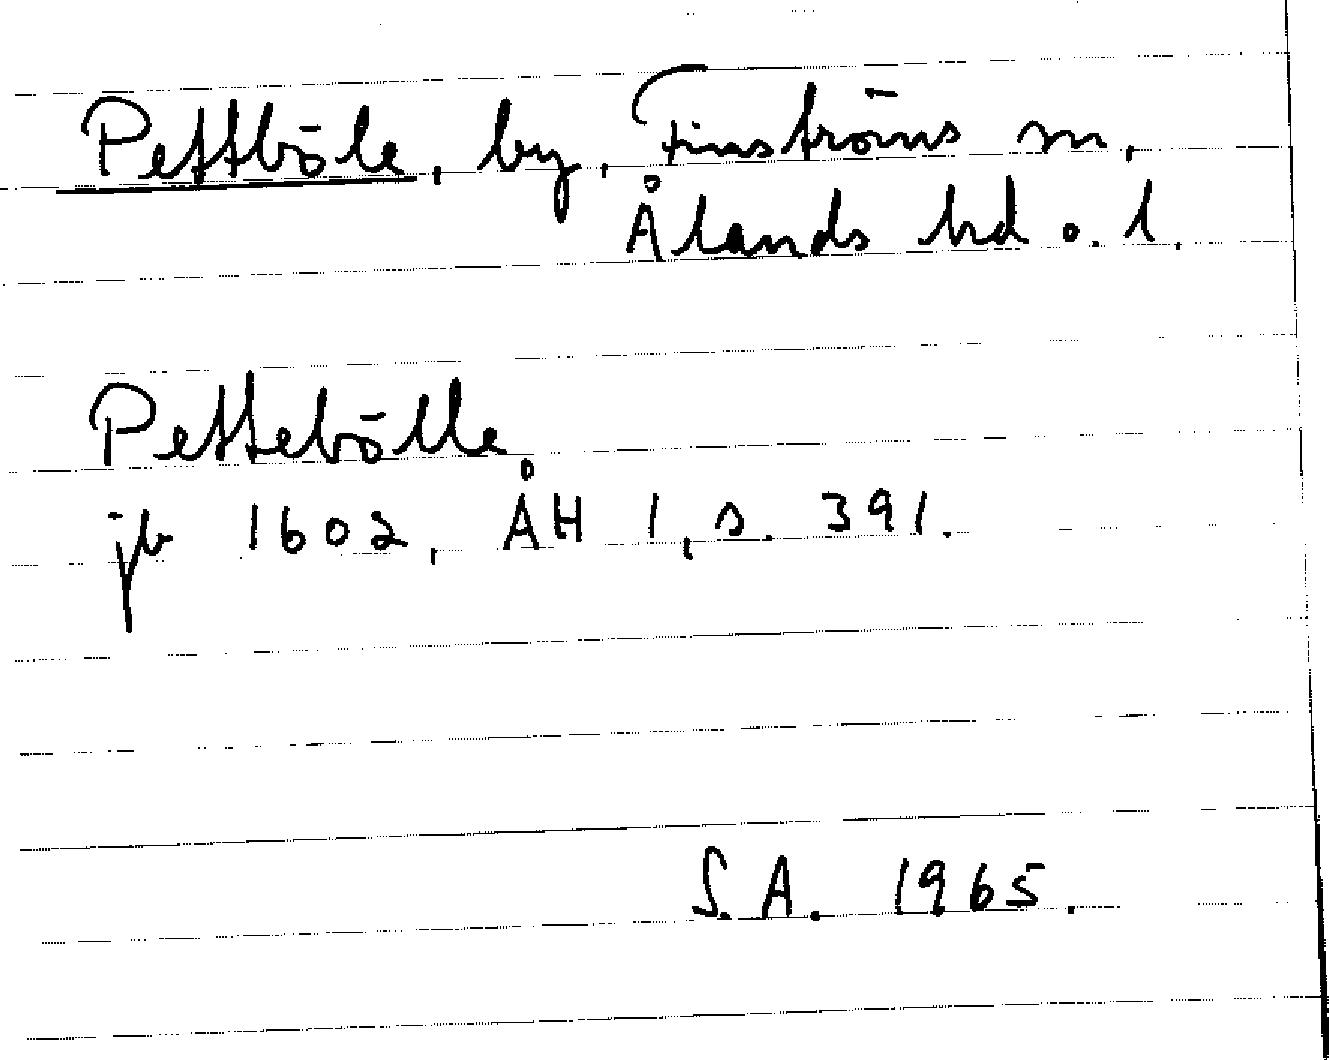 Pettböle, by, Finströms sn,
Ålands hd o. l.
Pettebölle
jb 1602, ÅH 1, s. 391.
S.A. 1965.